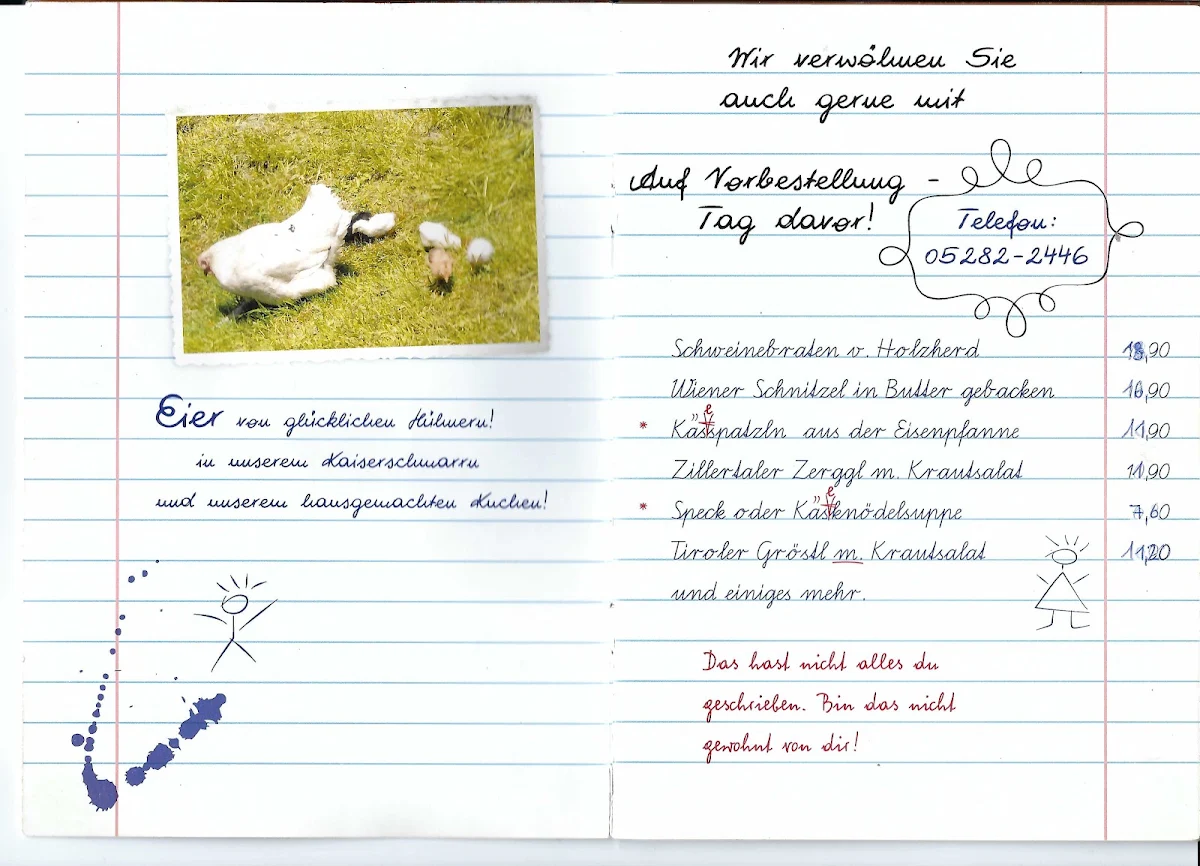 Eier von glücklichen Hühnern!
in unserem Kaiserschmarrn
und unserem hausgemachten Kuchen!
Wir verwöhnen Sie
auch gerne mit
Auf Vorbestellung -
Tag davor!
Telefon:
05282-2446
Schweinebraten v. Holzherd 18,90
Wiener Schnitzel in Butter gebacken
* Käsespatzln aus der Eisenpfanne 11,90
Zillertaler Zerggl m. Krautsalat
* Speck oder Käseknödelsuppe 7,60
Tiroler Gröstl m. Krautsalat 11,20
und einiges mehr.
Das hast nicht alles du
geschrieben. Bin das nicht
gewohnt von dir!